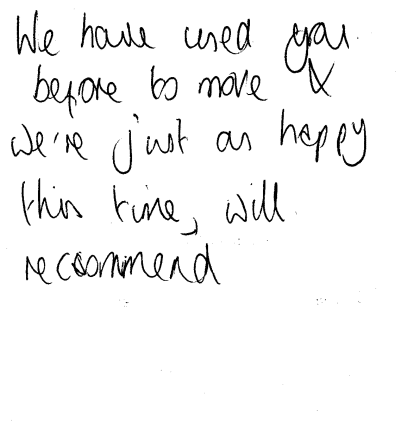 We have used you
before to move &
we're just as happy
this time, will
recommend